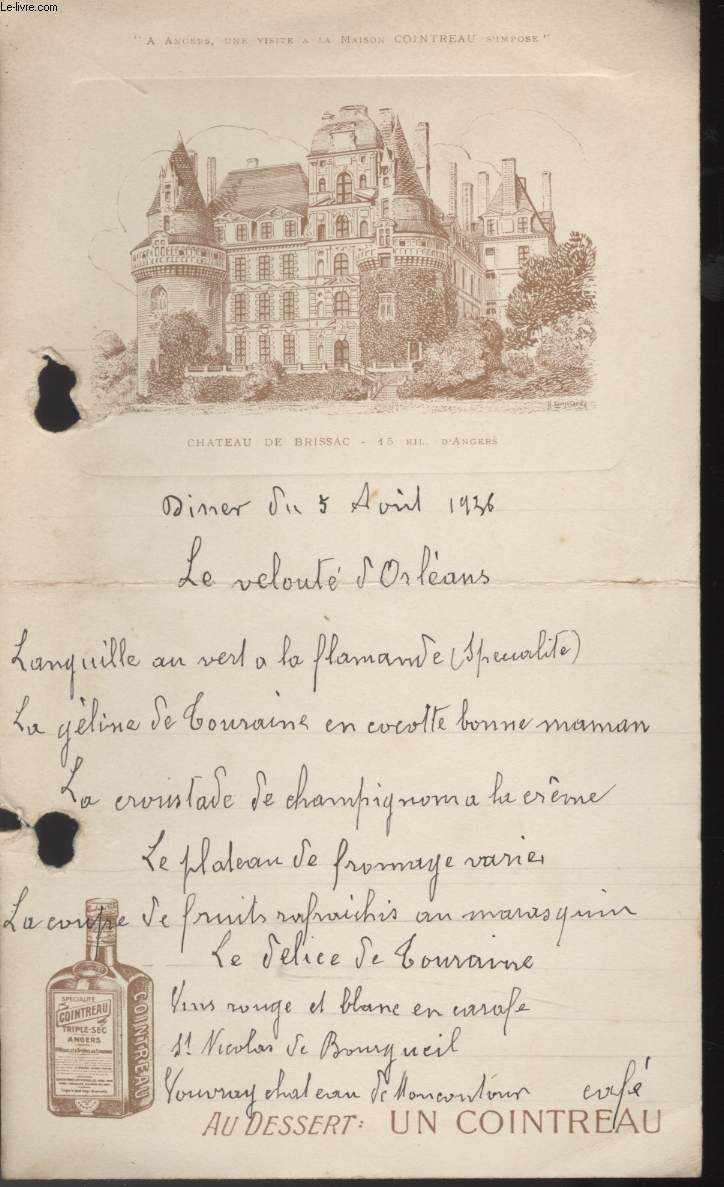 Le-livre.com
"A ANGERS, UNE VISITE A LA MAISON COINTREAU S'IMPOSE"
CHATEAU DE BRISSAC - 15 KIL. D'ANGERS
Diner du 5 Août 1936
Le velouté d'Orléans
L'anguille au vert a la flamande (Spécialité)
La géline de Touraine en cocotte bonne maman
La croustade de champignons a la crême
Le plateau de fromage variés
La coupe de fruits rafraichis au marasquin
Le délice de Touraine
Vins rouge et blanc en carafe
St Nicolas de Bourgueil
Vouvray chateau de Moncontour café
SPÉCIALITÉ
COINTREAU
TRIPLE-SEC
ANGERS
COINTREAU
AU DESSERT: UN COINTREAU